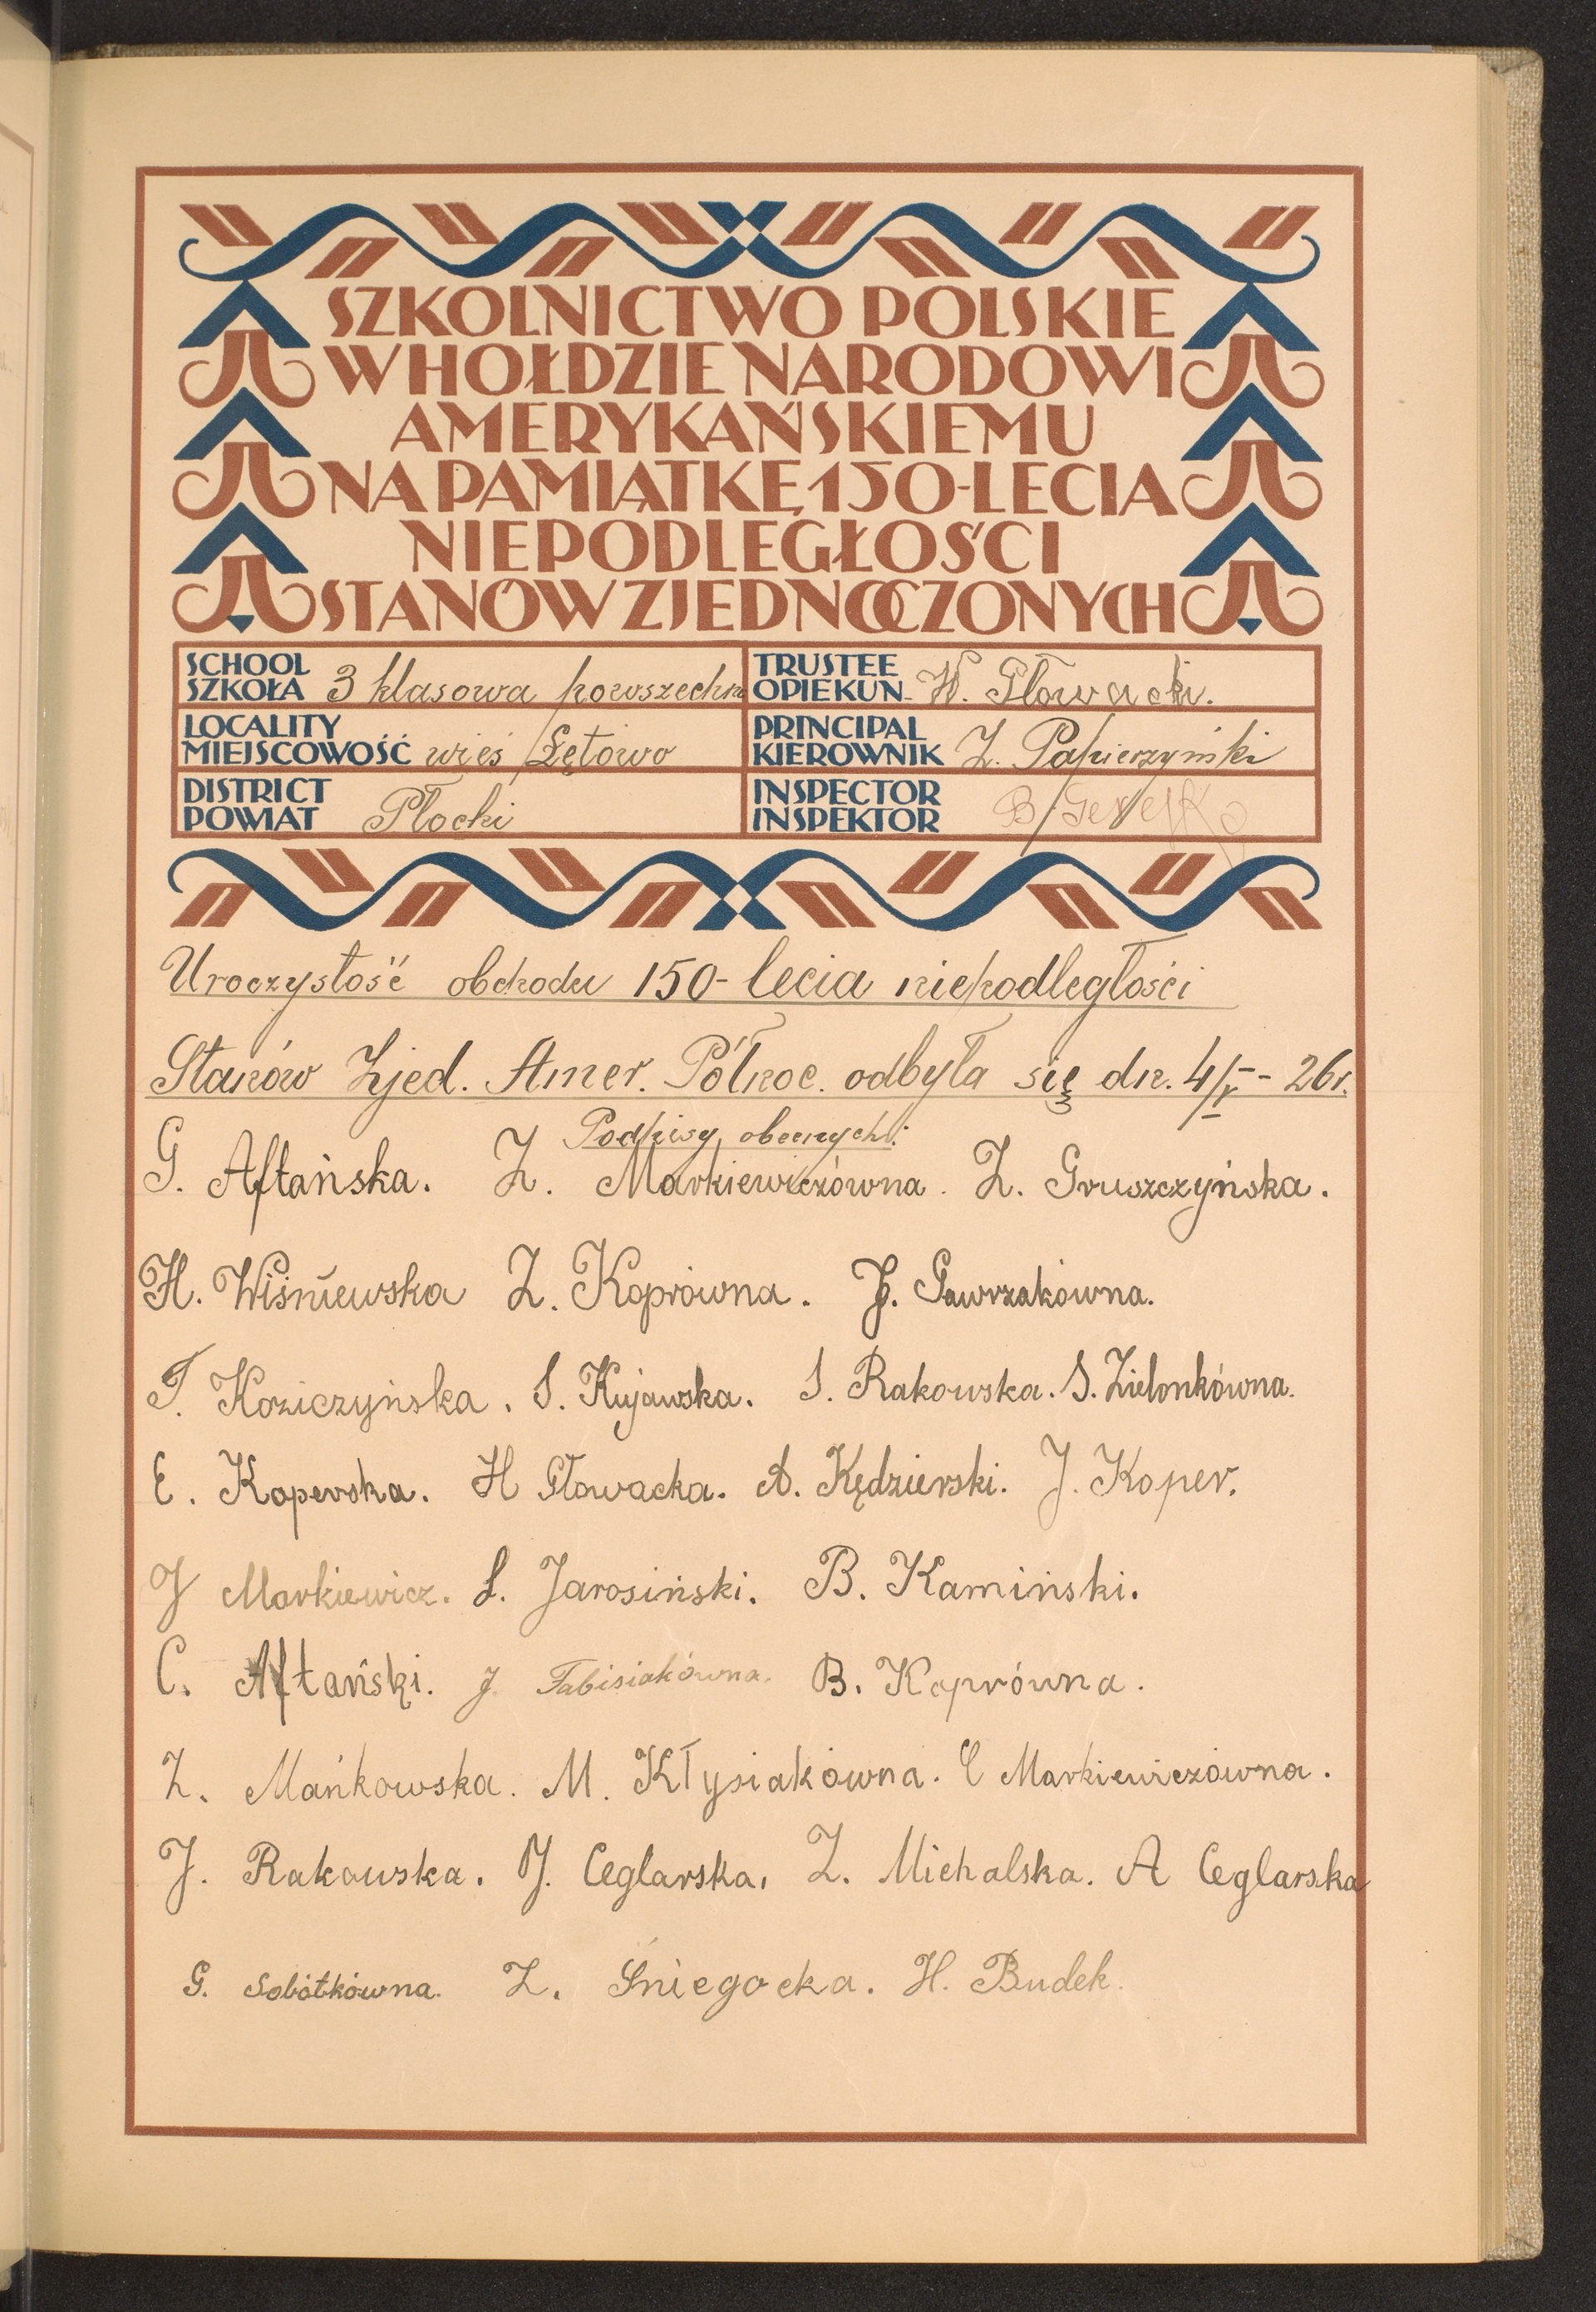 SZKOLNICTWO POLSKIE
W HOŁDZIE NARODOWI
AMERYKAŃSKIEMU
NA PAMIĄTKĘ 150-LECIA
NIEPODLEGŁOŚCI
STANÓW ZJEDNOCZONYCH
SCHOOL
SZKOŁA 3 klasowa powszechn
LOCALITY
MIEJSCOWOŚĆ wieś Łętowo
DISTRICT
POWIAT Płocki
TRUSTEE
OPIEKUN W. Głowacki.
PRINCIPAL
KIEROWNIK Z. Papierzyński
INSPECTOR
INSPEKTOR B.
Uroczystość obchodu 150-lecia niepodległości
Stanów Zjed. Amer. Północ. odbyła się dn. 4/V - 26r.
Podpisy obecnych:
G. Aftańska. Z. Markiewiczówna. Z. Gruszczyńska.
H. Wiśniewska Z. Koprówna. J. Gawrzakówna.
T. Koziczyńska. S. Kujawska. S. Rakowska. S. Zielonkówna.
E. Koperska. H Głowacka. A. Kędzierski. J. Koper.
J Markiewicz. S. Jarosiński. B. Kamiński.
C. Aftański. J. Fabisiakówna. B. Koprówna.
Z. Mańkowska. M. Kłysiakówna. C Markiewiczówna.
J. Rakowska. J. Ceglarska. Z. Michalska. A Ceglarska
G. Sobótkówna. Z. Śniegocka. H. Budek.